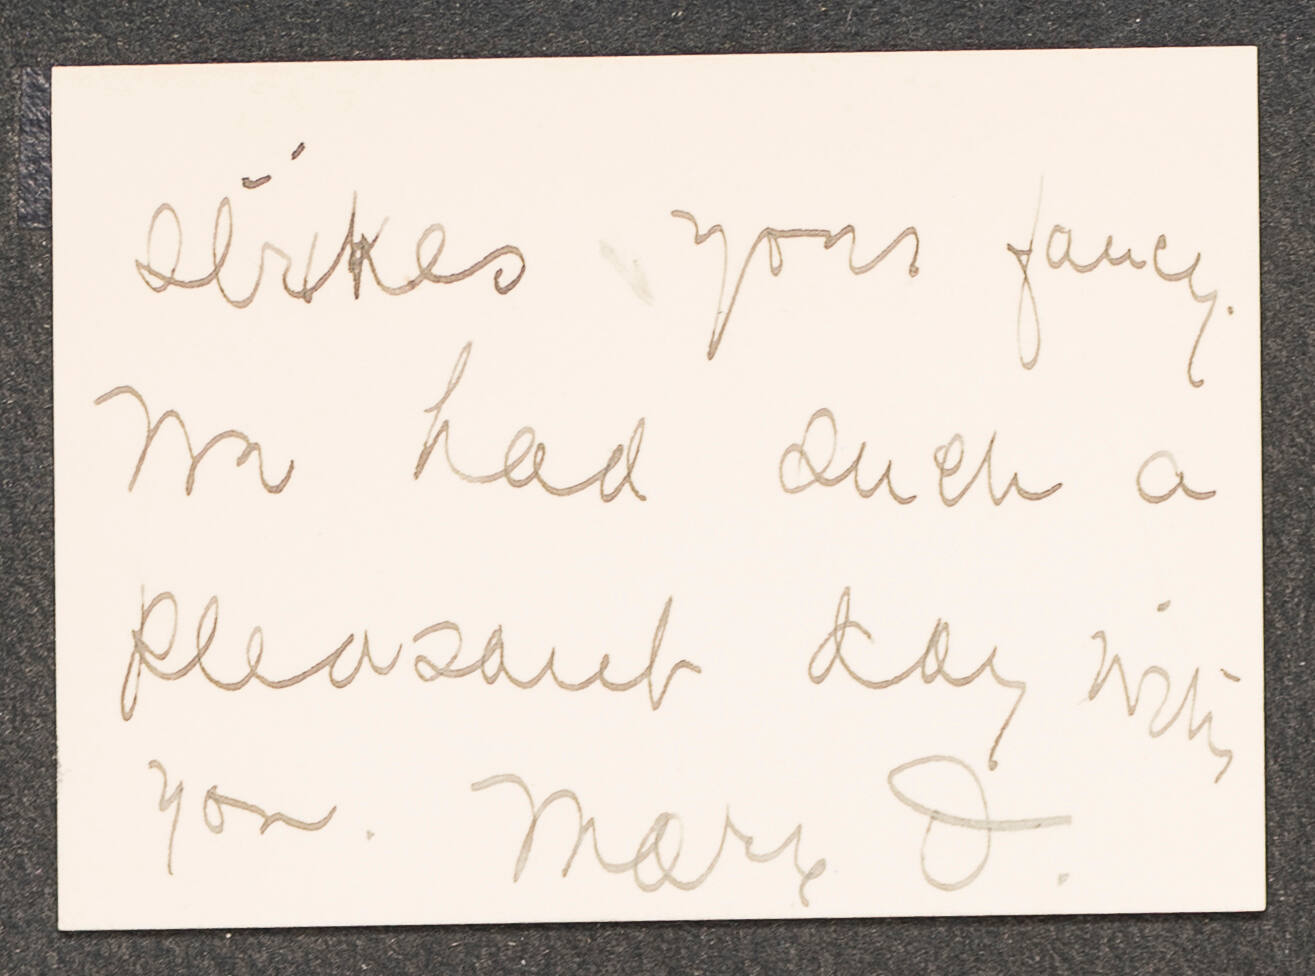 strikes your fancy.
We had such a
pleasant day with
you. Mary J.